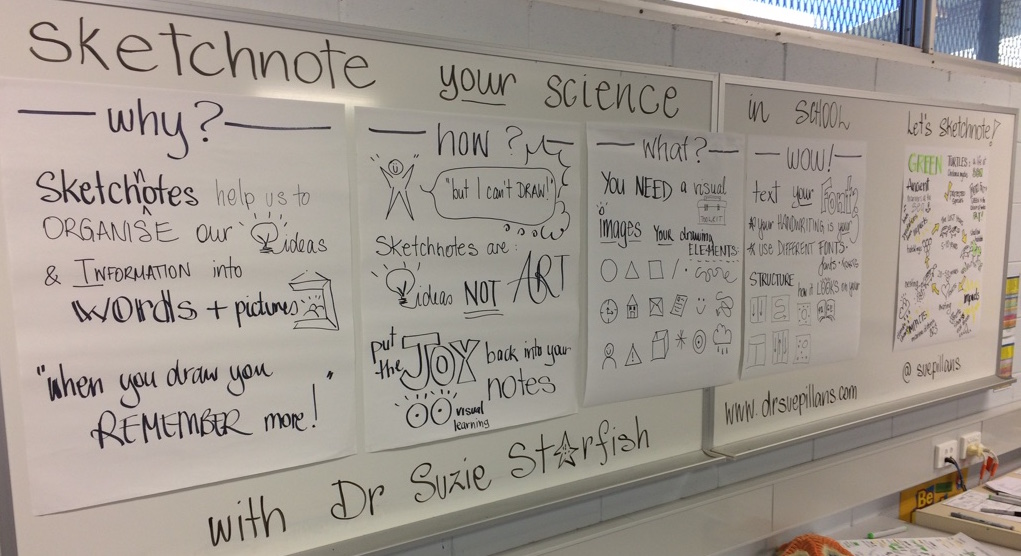 sketchnote your science
in SCHOOL
why?
Sketchnotes help us to
ORGANISE our ideas
& INFORMATION into
words + pictures
"when you draw you
REMEMBER more!"
how?
"but I can't DRAW!"
Sketchnotes are:
ideas NOT ART
put the JOY back into your
notes
visual
learning
what?
YOU NEED a visual
TOOLKIT
images Your drawing
ELEMENTS
WOW!
text your Font?
* your HANDWRITING is your
* USE DIFFERENT FONTS
STRUCTURE how it LOOKS on your
Let's sketchnote!
GREEN TURTLES:
Ancient
www.drsuepillans.com
@suepillans
with Dr Suzie Starfish
Be